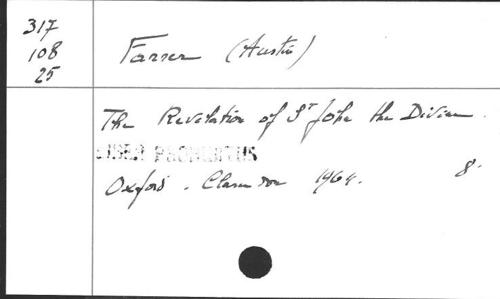 317
108
25
Farrer (Austin)
The Revelation of St John the Divine.
LIBER PROHIBITUS
Oxford. Clarendon 1964. 8°